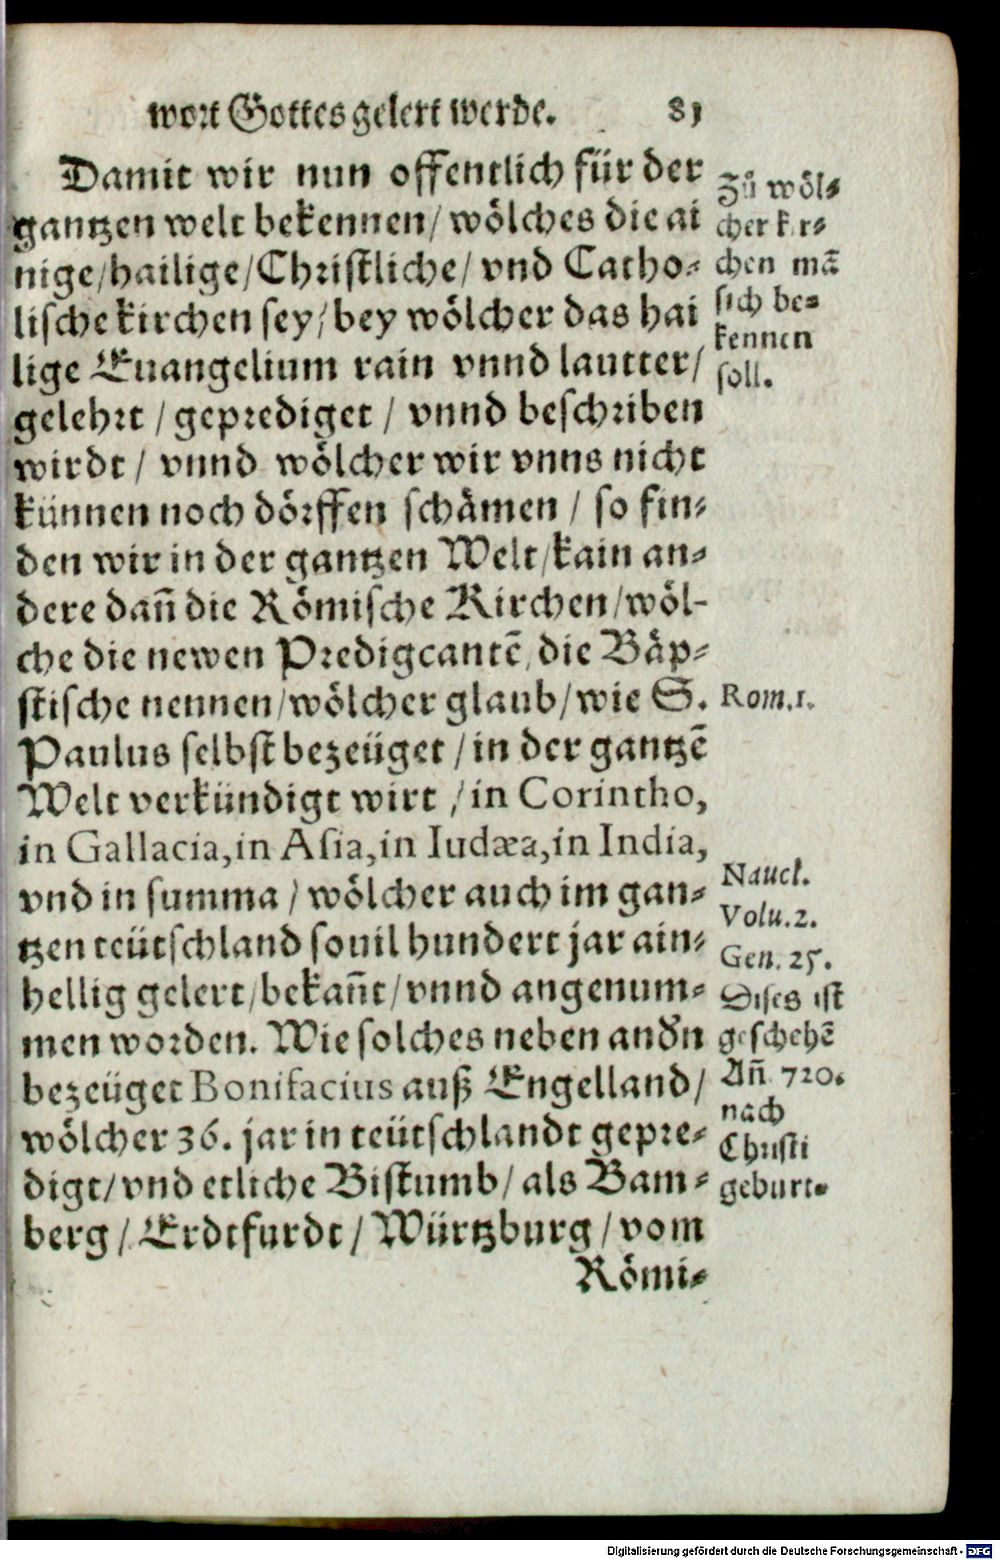 wort Gottes gelert werde. 81
Damit wir nun offentlich für der
gantzen welt bekennen/ wölches die ai
nige/ hailige/ Christliche/ vnd Catho⸗
lische kirchen sey/ bey wölcher das hai
lige Euangelium rain vnnd lautter/
gelehrt / geprediget / vnnd beschriben
wirdt / vnnd wölcher wir vnns nicht
künnen noch dörffen schämen / so fin⸗
den wir in der gantzen Welt/ kain an⸗
dere dañ die Römische Kirchen/ wöl-
che die newen Predigcantē, die Bäp⸗
stische nennen/ wölcher glaub/ wie S.
Paulus selbst bezeüget / in der gantzē
Welt verkündigt wirt / in Corintho,
in Gallacia, in Asia, in Iudæa, in India,
vnd in summa / wölcher auch im gan⸗
tzen teütschland souil hundert jar ain⸗
hellig gelert/ bekañt/ vnnd angenum⸗
men worden. Wie solches neben andn
bezeüget Bonifacius auß Engelland/
wölcher 36. jar in teütschlandt gepre⸗
digt/ vnd etliche Bistumb/ als Bam⸗
berg / Erdtfurdt / Würtzburg / vom
Römi⸗
Zů wöl⸗
cher kir⸗
chen mā
sich be⸗
kennen
soll.
Rom.1.
Naucl.
Volu.2.
Gen. 25.
Dises ist
geschehē
Añ 720.
nach
Christi
geburt.
Digitalisierung gefördert durch die Deutsche Forschungsgemeinschaft - DFG